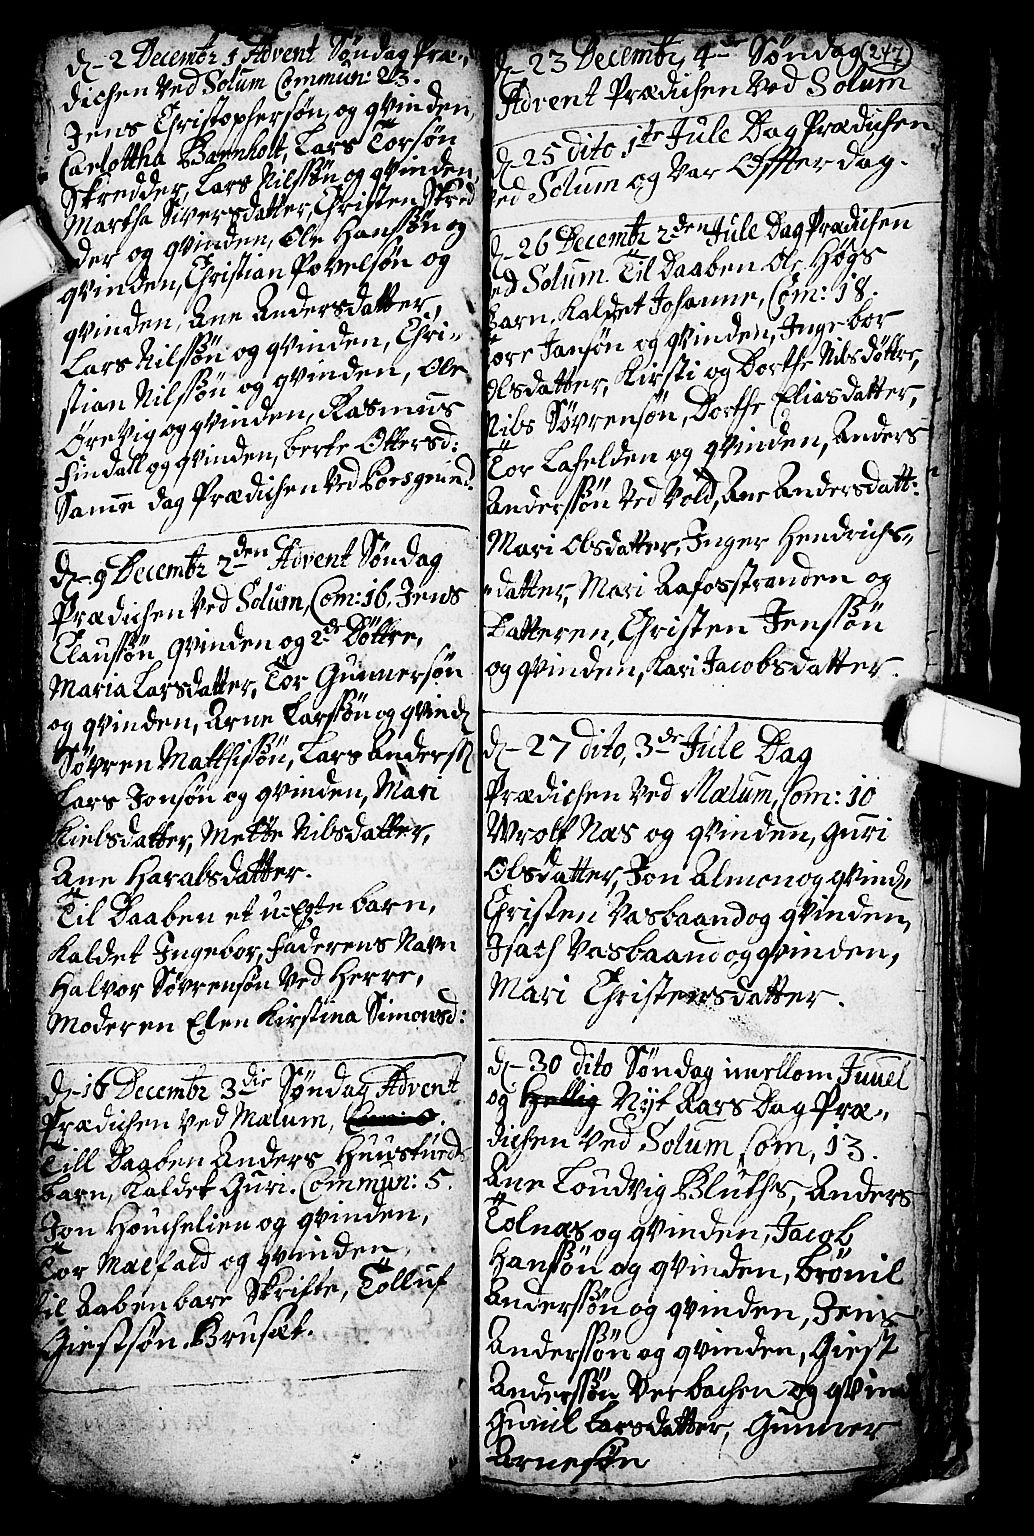 d. 2 Decembr 1 Advent Søndag Præ-
dichen Ved Solum Commun: 23.
Jens Christophersøn, og qvinden,
Carlottha Barnholt, Lars Torsøn
Skredder, Lars Nilssøn og qvinden,
Martha Siversdatter, Christen Skred
der og qvinden, Ole Hanssøn og
qvinden, Christian Povelsøn og
qvinden, Ane Andersdatter,
Lars Nilssøn og qvinden, Chri-
stian Nilssøn og qvinden, Ole
Ørevig og qvinden, Rasmus
Findall og qvinden, berte Ottersd:
Samme dag Prædichen Ved Porsgrund.
d. 9 Decembr 2den Advent Søndag
Prædichen Ved Solum, Com: 16, Jens
Claussøn qvinden og 2de Døttre,
Maria Larsdatter, Tor Gunnersøn
og qvinden, Arne Larssøn og qvind
Søvren Matthissøn, Lars Anderss
Lars Jonsøn og qvinden, Mari
Nielsdatter, Mette Nilsdatter,
Ane Haraldsdatter.
Til Daaben et u-Egte barn,
Kaldet Ingebor, faderens Navn
Halvor Søvrensøn Ved Herre,
Moderen Elen Kirstina Simonsd:
d. 16 Decembr 3die Søndag Advent
Prædichen Ved Mælum,
Till Daaben Anders
barn, Kaldet Guri. Commun: 5.
Jon Houchelien og qvinden,
Tor Mælfald og qvinden
til Aabenbare Skrifte, Tølluf
Giestsøn Brusæt.
247
d. 23 Decembr, 4de Søndag
Advent Prædichen Ved Solum
d. 25 dito 1te Jule Dag Prædichen
Ved Solum og Var Offterdag.
d. 26 Decembr 2den Jule Dag Prædichen
Ved Solum. Til Daaben Ole Høgs
Barn, Kaldet Johanne, Com: 18.
Tore Jansøn og qvinden, Ingebor
Olsdatter, Kirsti og Dorthe Nilsdøttre,
Nils Søvrensøn, Dorthe Eliasdatter,
Tor Lahelden og qvinden, Anders
Anderssøn Ved Vold, Ane Andersdatt:
Mari Olsdatter, Inger Hendrichs-
datter, Mari Aafosstranden og
Datteren, Christen Jenssøn
og qvinden, Kari Jacobsdatter.
d. 27 dito, 3de Jule Dag
Prædichen Ved Mælum, Com: 10
Wrolf Næs og qvinden, Guri
Olsdatter, Jon Almon og qvind,
Christen Vasbaand og qvinden,
Isach Vasbaand og qvinden,
Mari Christensdatter.
d. 30 dito Søndag imellom Juuel
og Hellig Nyt Aars Dag Præ-
dichen Ved Solum, Com, 13.
Ane Loudvig Bluths, Anders
Tolnæs og qvinden, Jacob
Hanssøn og qvinden, Brønil
Anderssøn og qvinden, Jens
Anderssøn og qvinden, Giest
Anderssøn Verbachen og qvind
Gunil Larsdatter, Gunner
Arnesøn